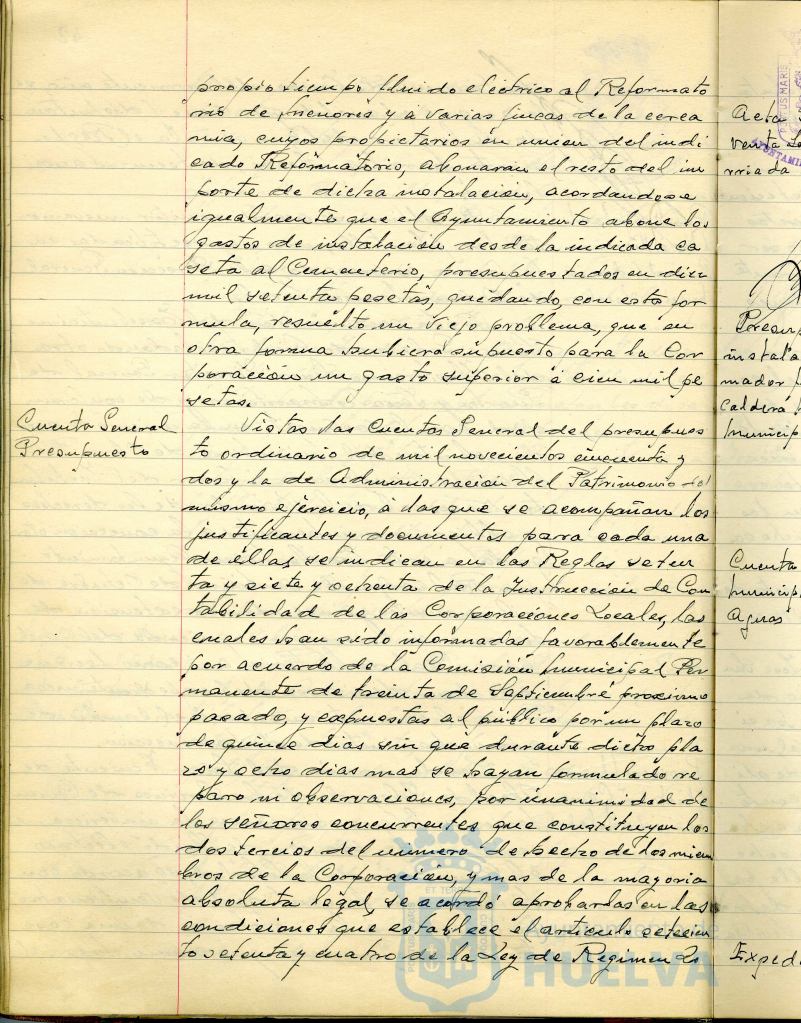 propio tiempo fluido eléctrico al Reformato
rio de menores y a varias fincas de la cerca
nia, cuyos propietarios en union del indi
cado Reformatorio, abonaran el resto del im
porte de dicha instalación, acordandose
igualmente que el Ayuntamiento abone los
gastos de instalación desde la indicada ca
seta al Cementerio, presupuestados en diez
mil setenta pesetas, quedando, con esta for
mula, resuelto un viejo problema, que en
otra forma hubiera supuesto para la Cor
poración un gasto superior a cien mil pe
setas.
Cuenta General
Presupuesto
Vistas las Cuentas General del presupues
to ordinario de mil novecientos cincuenta y
dos y la de Administracion del Patrimonio del
mismo ejercicio, a las que se acompañan los
justificantes y documentos para cada una
de éllas se indican en las Reglas seten
ta y siete y ochenta de la Instruccion de Con
tabilidad de las Corporaciones Locales, las
cuales han sido informadas favorablemente
por acuerdo de la Comisión municipal Per
manente de treinta de Septiembre proximo
pasado, y expuestas al público por un plazo
de quince dias sin que durante dicho pla
zo y ocho dias mas se hayan formulado re
paro ni observaciones, por unanimidad de
los señores concurrentes que constituyen los
dos tercios del numero de hecho de los miem
bros de la Corporación, y mas de la mayoria
absoluta legal, se acordó aprobarlas en las
condiciones que establece el articulo setecien
to setenta y cuatro de la Ley de Regimen Lo
HUELVA
Acta
venta
rriada
Presup
instala
mador
caldera
municip
Cuenta
municip
Aguas
Exped